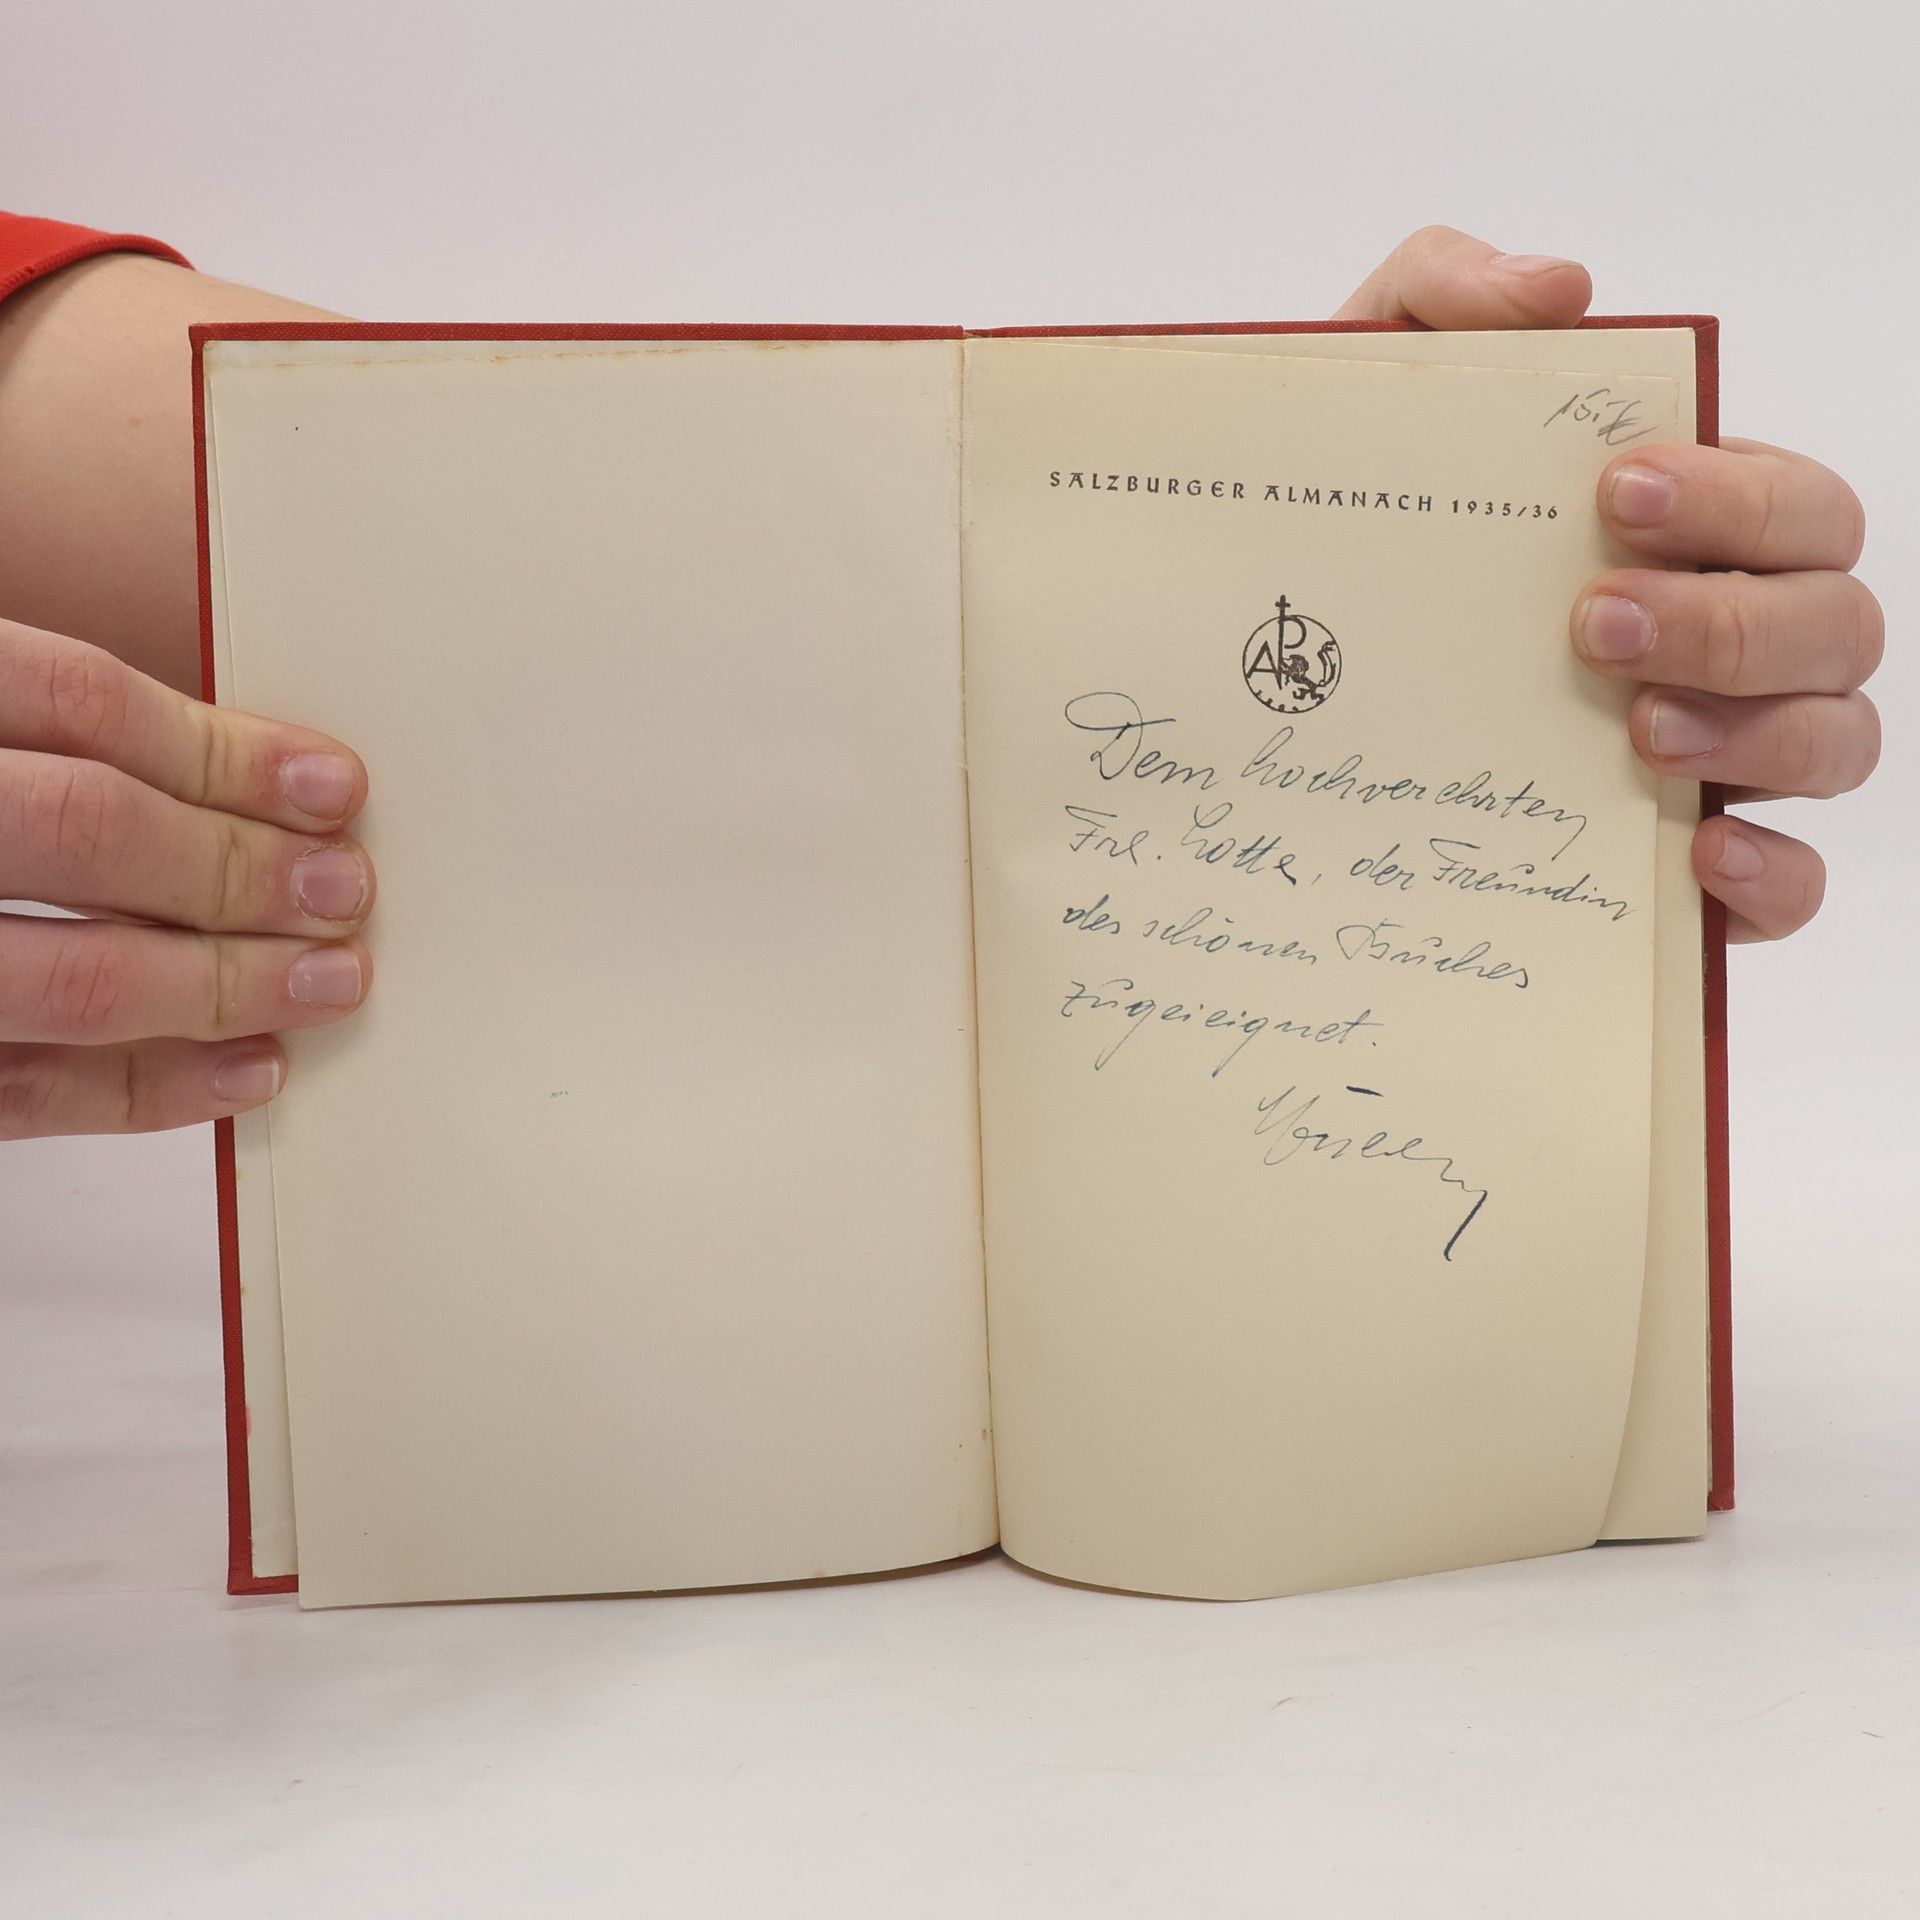 15.-
SALZBURGER ALMANACH 1935/36
AP
Dem hochverehrten
Frl. Lotte, der Freundin
des schönen Buches
zugeeignet.